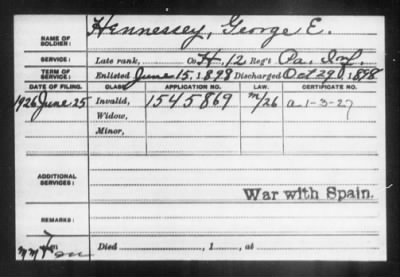 NAME OF SOLDIER: Hennessey, George E.
SERVICE: Late rank, Co. H, 12 Reg't Pa. Inf.
TERM OF SERVICE: Enlisted June 15, 1898 Discharged Oct 29, 1898
DATE OF FILING. CLASS. APPLICATION NO. LAW. CERTIFICATE NO.
1926 June 25 Invalid, 1545869 m/26 a-1-3-27
Widow,
Minor,
ADDITIONAL SERVICES:
War with Spain.
REMARKS:
Died , 1 , at